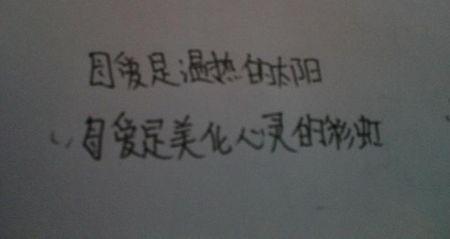 自爱是温热的太阳
自爱是美化心灵的彩虹